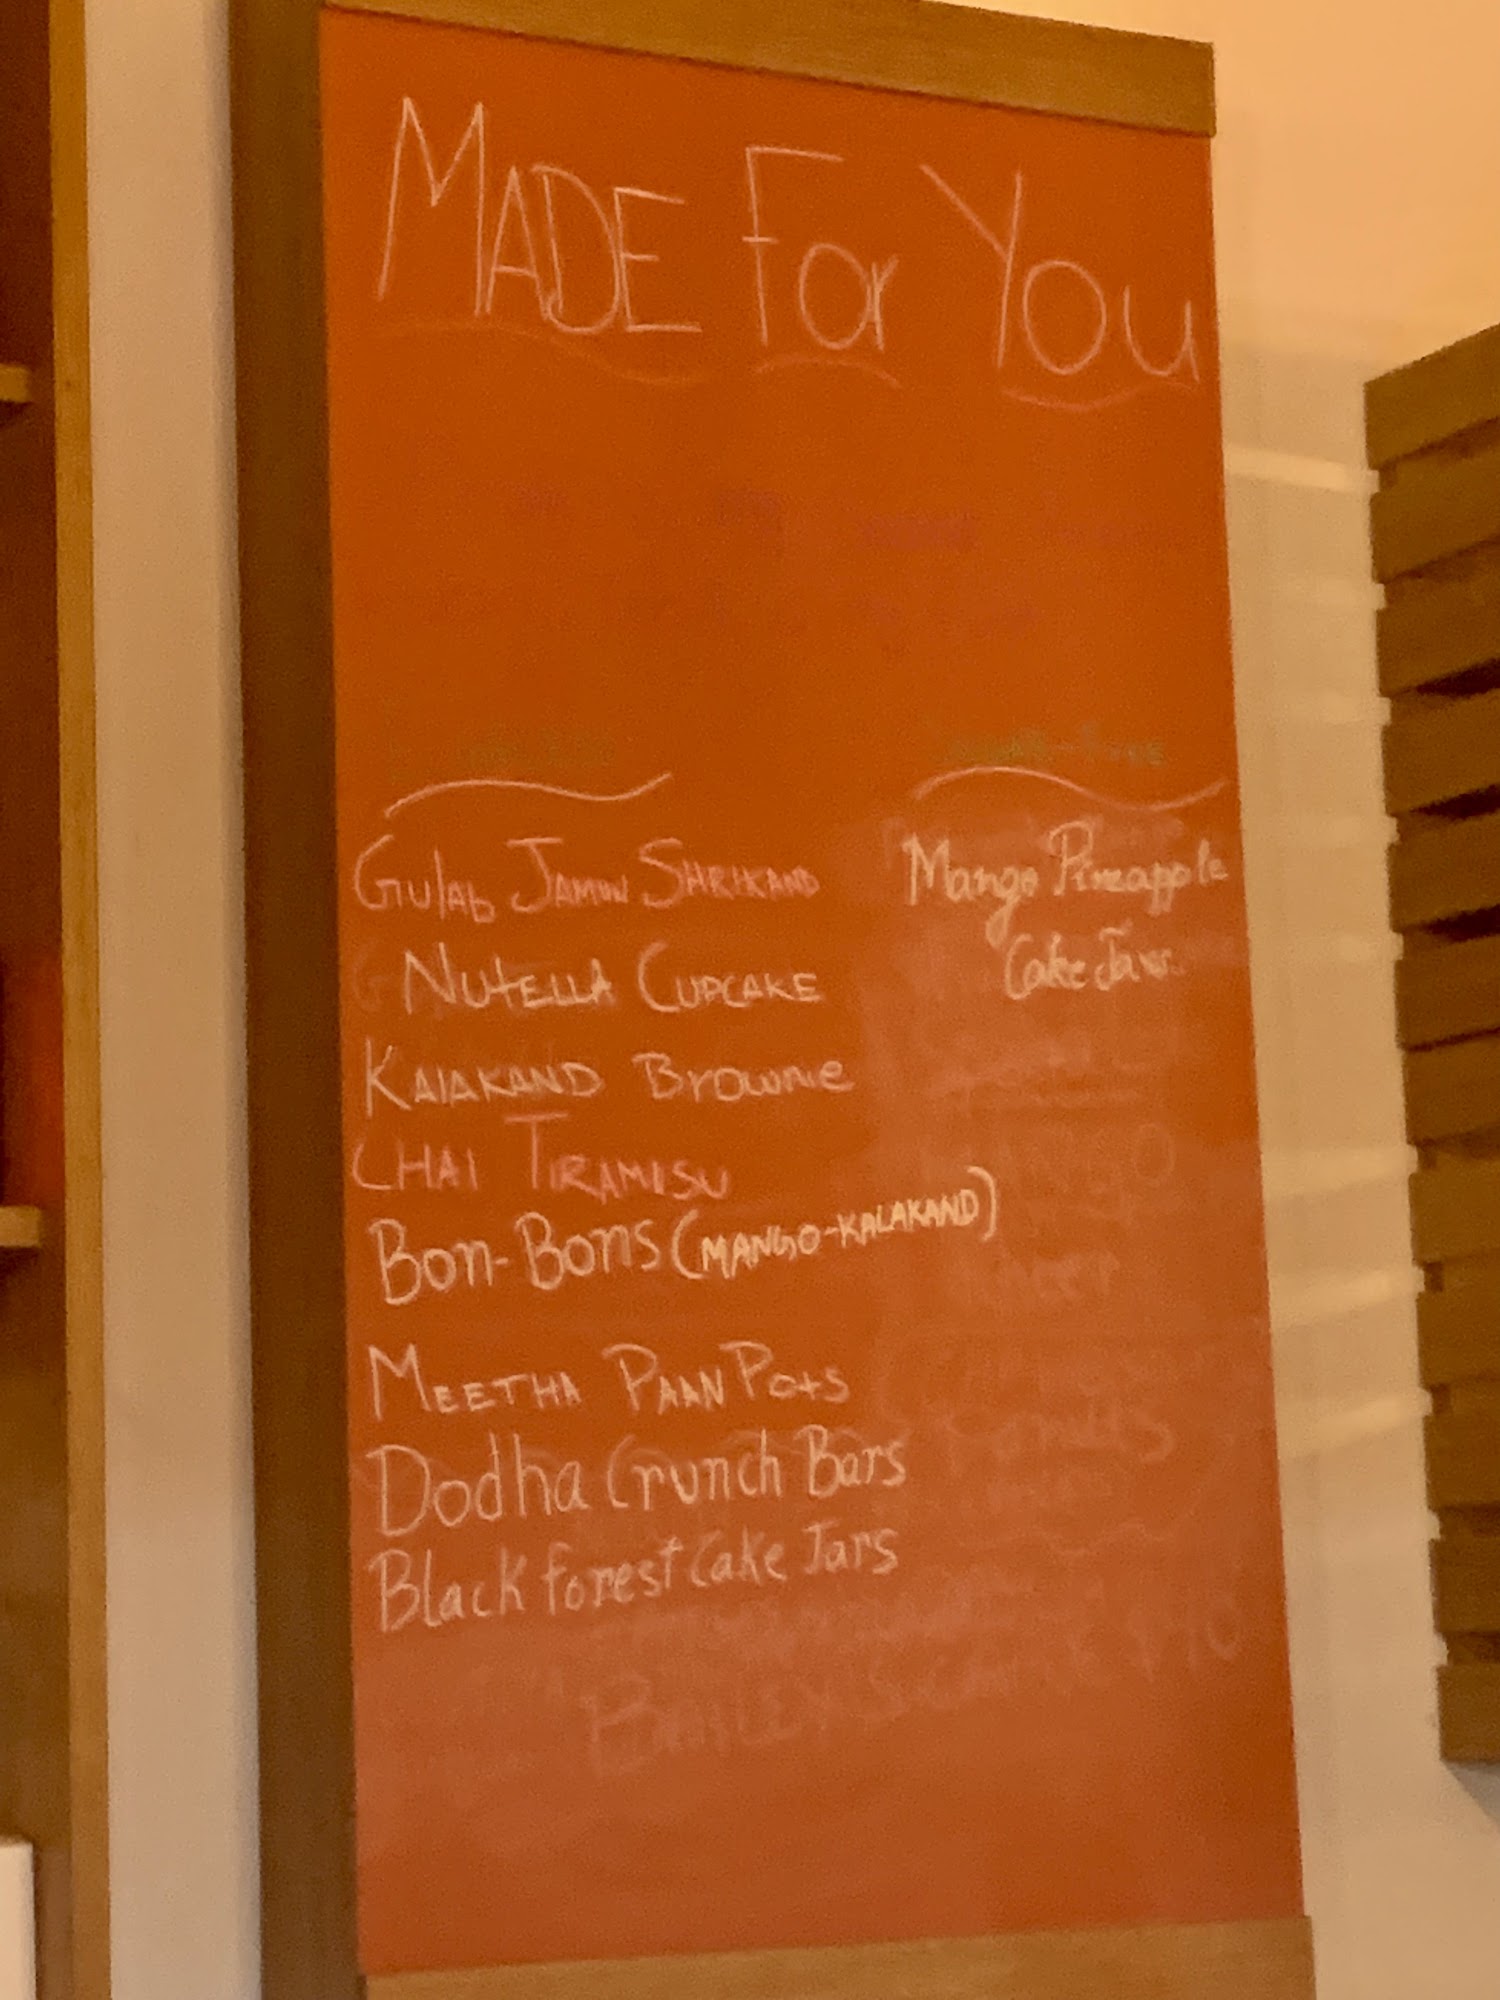 MADE For You
Gulab JAMUN SHRIKAND
NUTELLA CUPCAKE
KALAKAND BROWNIE
CHAI TIRAMISU
Bon-Bons (MANGO-KALAKAND)
MEETHA PAAN Pots
Dodha Crunch Bars
Black forest Cake Jars
Mango Pineapple
Cake Jars